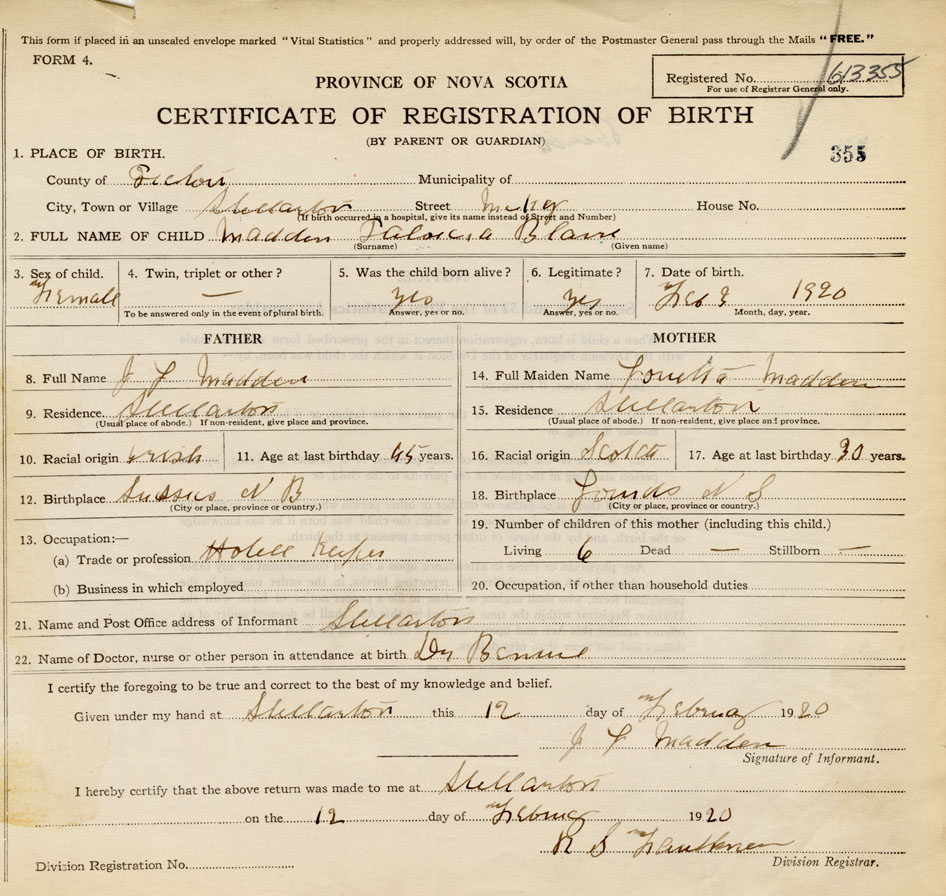 This form if placed in an unsealed envelope marked "Vital Statistics" and properly addressed will, by order of the Postmaster General pass through the Mails "FREE."
FORM 4.
Registered No. 613355
For use of Registrar General only.
PROVINCE OF NOVA SCOTIA
CERTIFICATE OF REGISTRATION OF BIRTH
(BY PARENT OR GUARDIAN)
355
1. PLACE OF BIRTH.
County of Pictou Municipality of
City, Town or Village Stellarton Street House No.
(If birth occurred in a hospital, give its name instead of Street and Number)
2. FULL NAME OF CHILD Madden
(Surname) (Given name)
3. Sex of child. 4. Twin, triplet or other? 5. Was the child born alive? 6. Legitimate? 7. Date of birth.
Female — yes yes Feb 1920
To be answered only in the event of plural birth. Answer, yes or no. Answer, yes or no. Month, day, year.
FATHER MOTHER
8. Full Name Madden 14. Full Maiden Name Madden
9. Residence Stellarton 15. Residence Stellarton
(Usual place of abode.) If non-resident, give place and province. (Usual place of abode.) If non-resident, give place and province.
10. Racial origin Irish 11. Age at last birthday 45 years. 16. Racial origin Scotch 17. Age at last birthday 30 years.
12. Birthplace Sussex N B 18. Birthplace N S
(City or place, province or country.) (City or place, province or country.)
13. Occupation:— 19. Number of children of this mother (including this child.)
(a) Trade or profession Hotell Keeper Living 6 Dead — Stillborn —
(b) Business in which employed 20. Occupation, if other than household duties
21. Name and Post Office address of Informant Stellarton
22. Name of Doctor, nurse or other person in attendance at birth Dr
I certify the foregoing to be true and correct to the best of my knowledge and belief.
Given under my hand at Stellarton this 12 day of 1920
Madden
Signature of Informant.
I hereby certify that the above return was made to me at Stellarton
on the 12 day of 1920
R S
Division Registration No. Division Registrar.